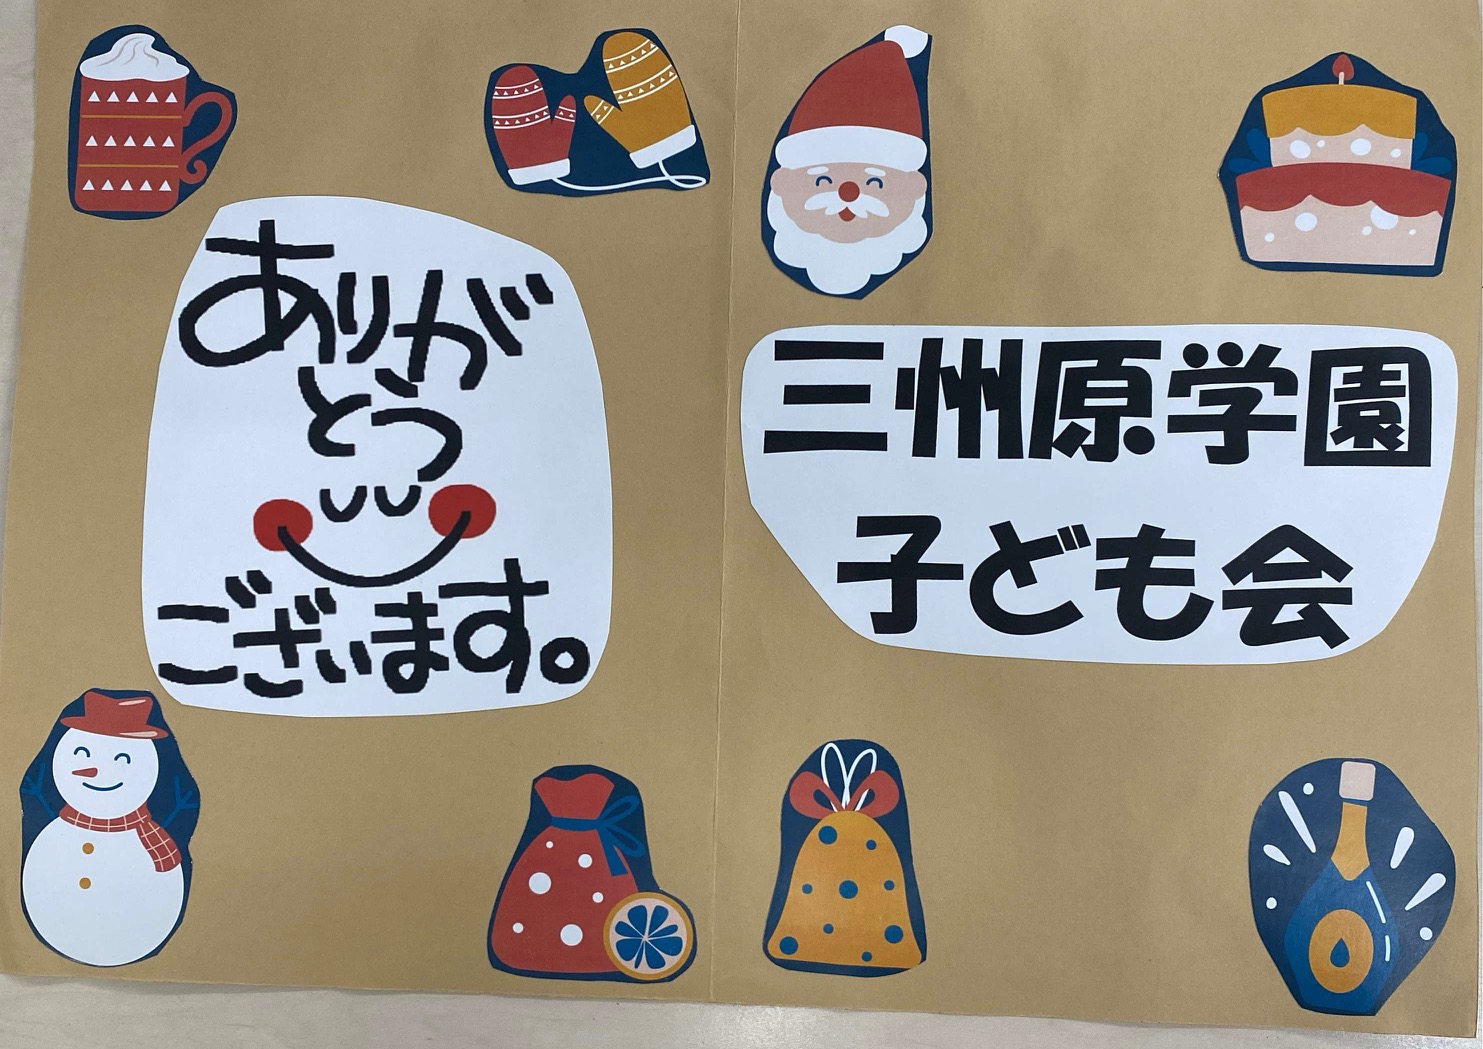 ありが
とう
ございます。
三州原学園
子ども会